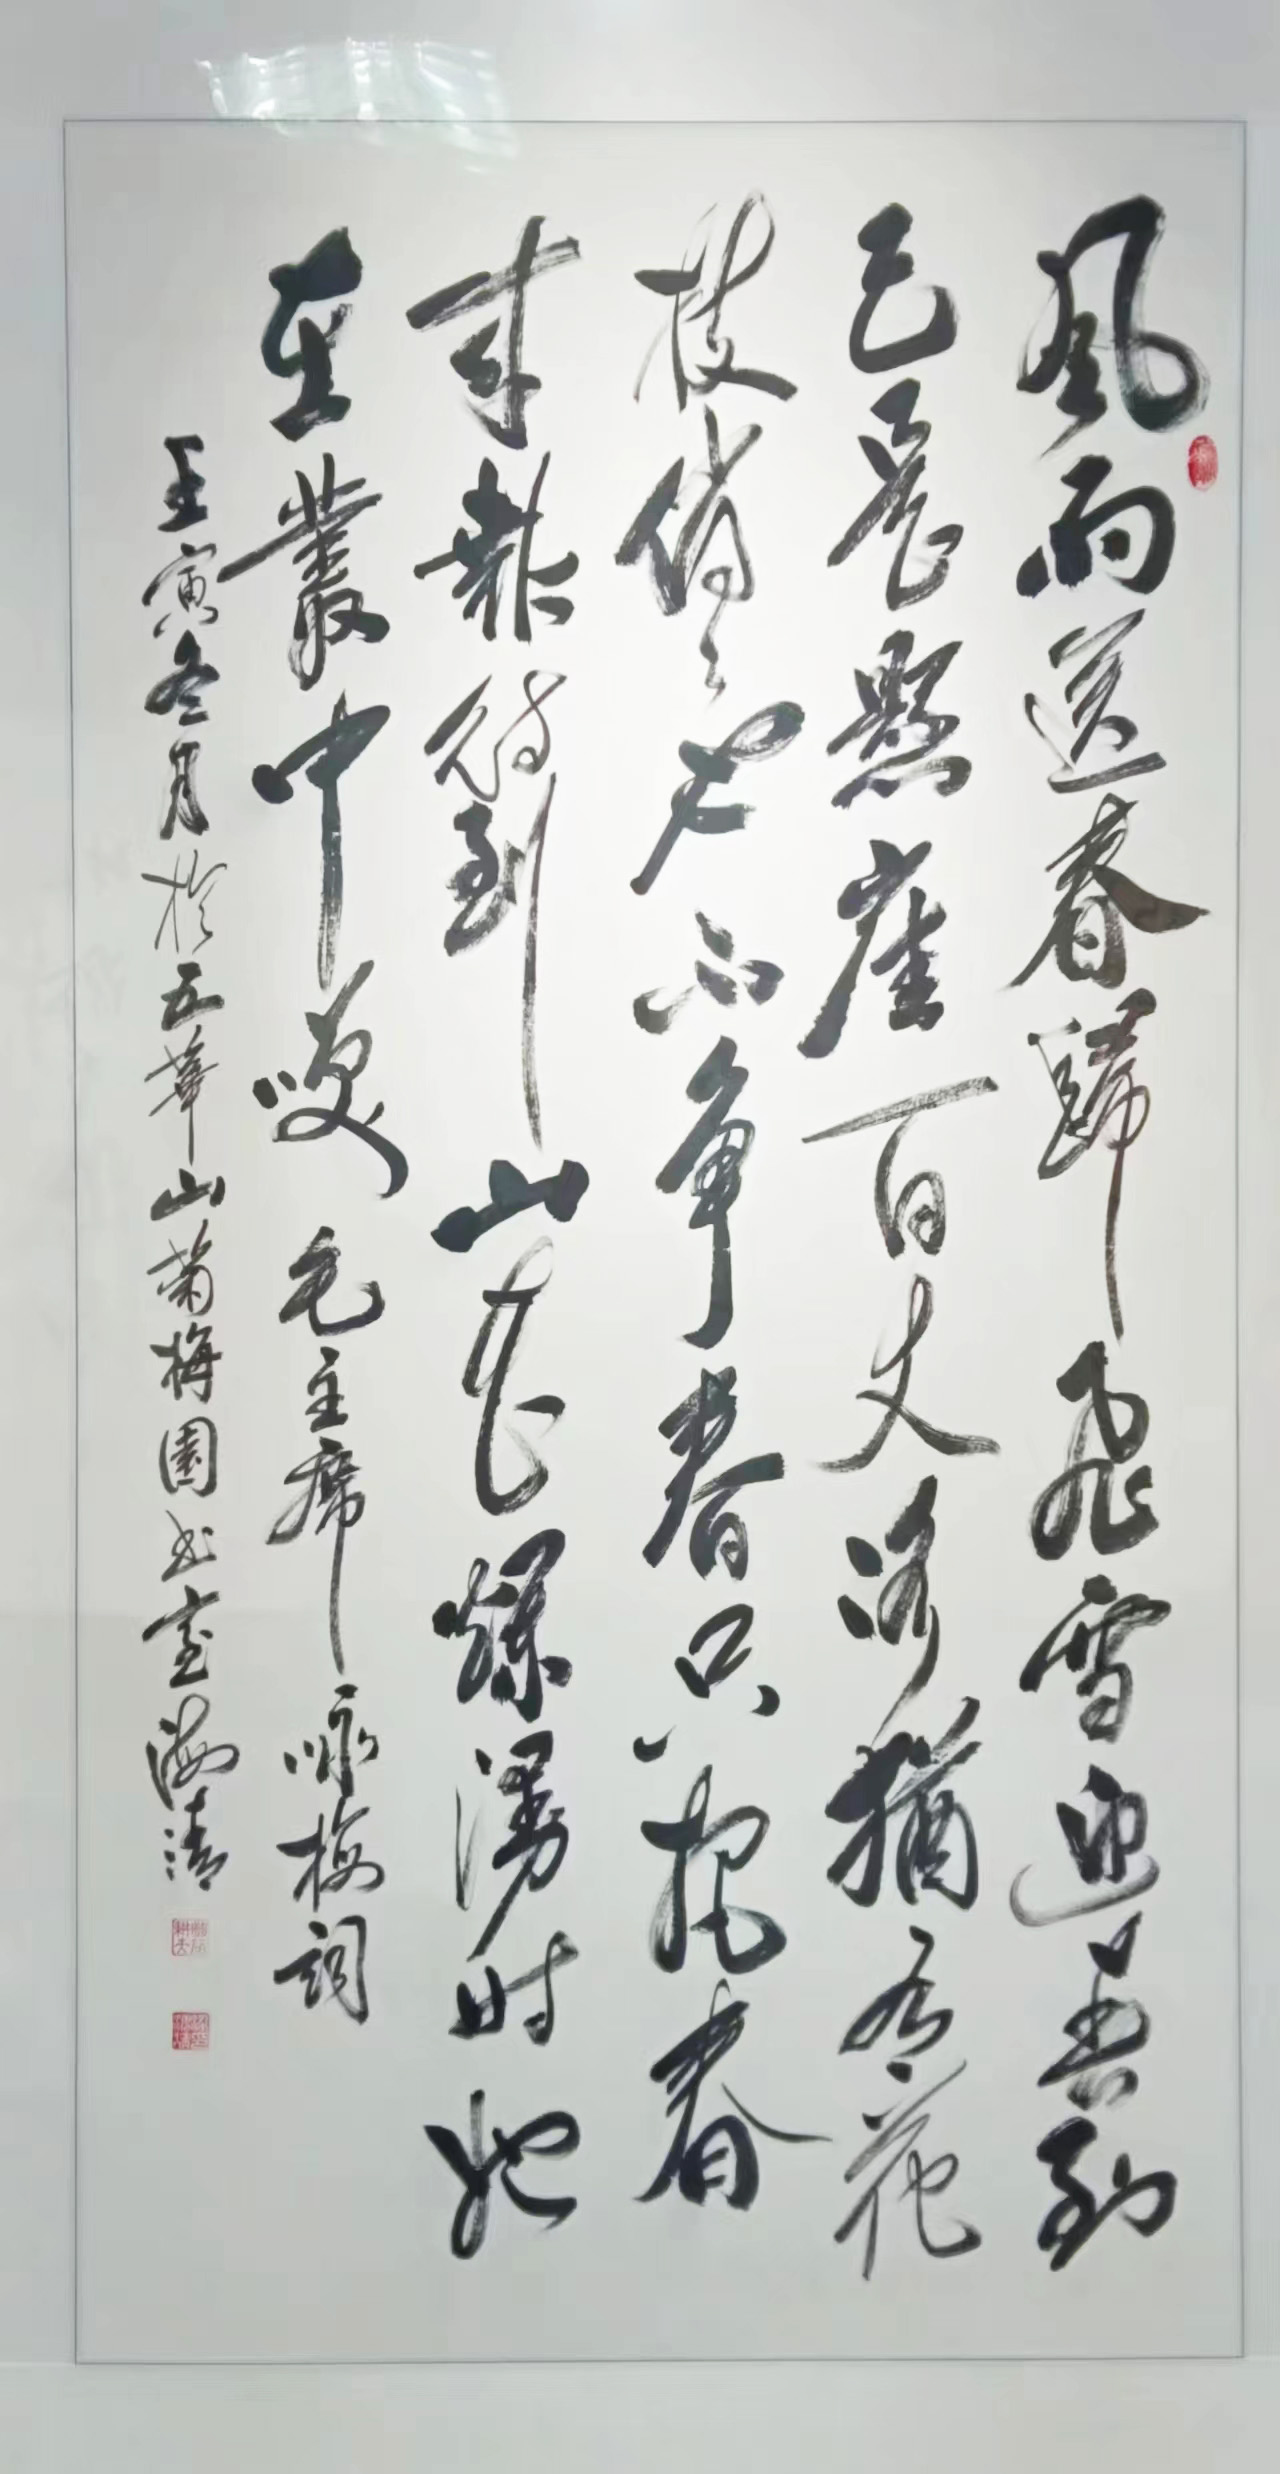 風雨送春歸飛雪迎春到
已是懸崖百丈冰猶有花
枝俏〻也不争春只把春
来報待到山花爛漫時她
在叢中咲 毛主席咏梅詞
壬寅冬月於五華山菊梅園书室海清